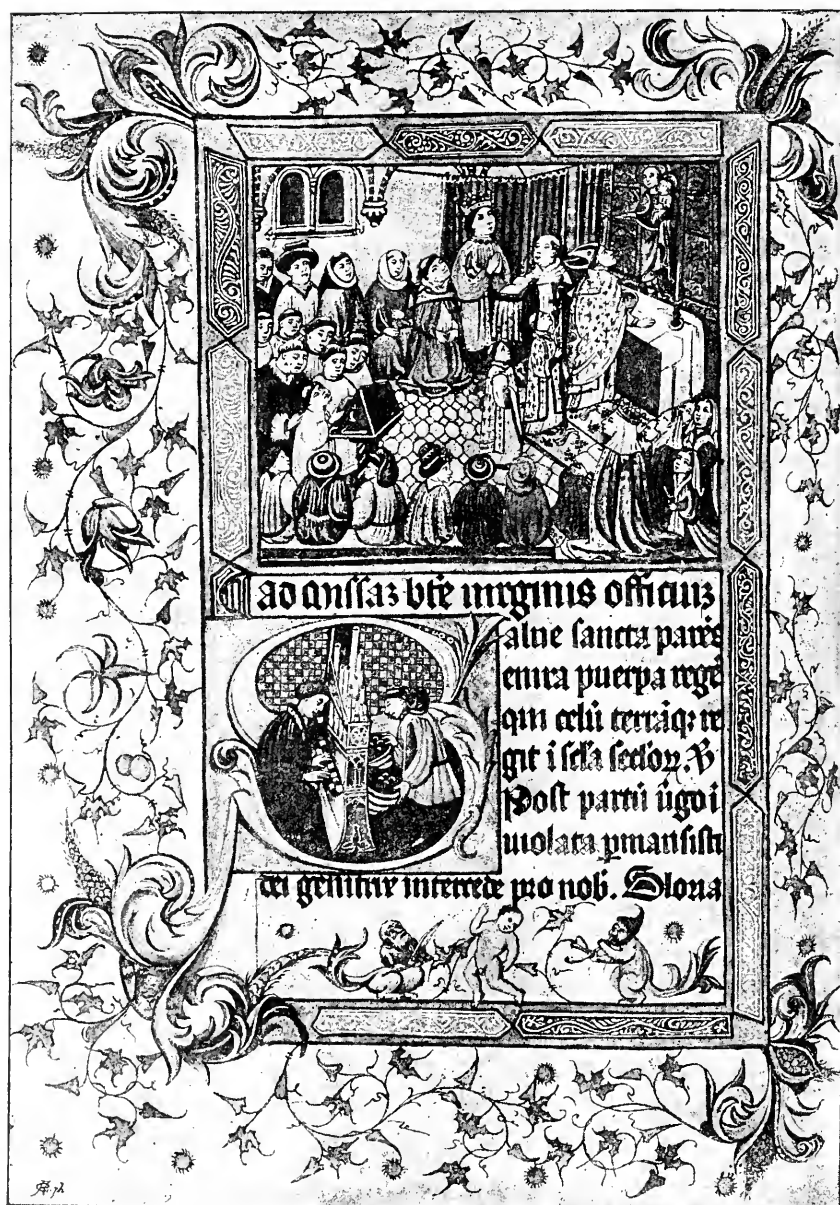 ad missaz bte virginis officiuz
alve sancta parēs
enixa puerpa regē
qui celū terrāqꝫ re
git ī scła secłoꝝ. ℣
Post partū v̄go i
violata ꝑmansisti
dei genitrix intercede pro nob. Gloria